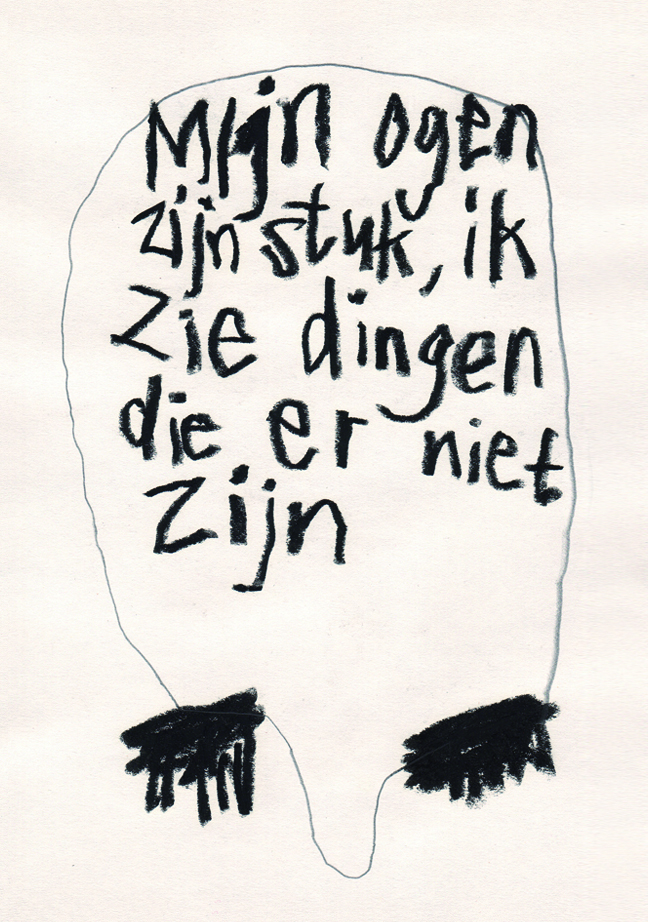 Mijn ogen
zijn stuk, ik
zie dingen
die er niet
zijn